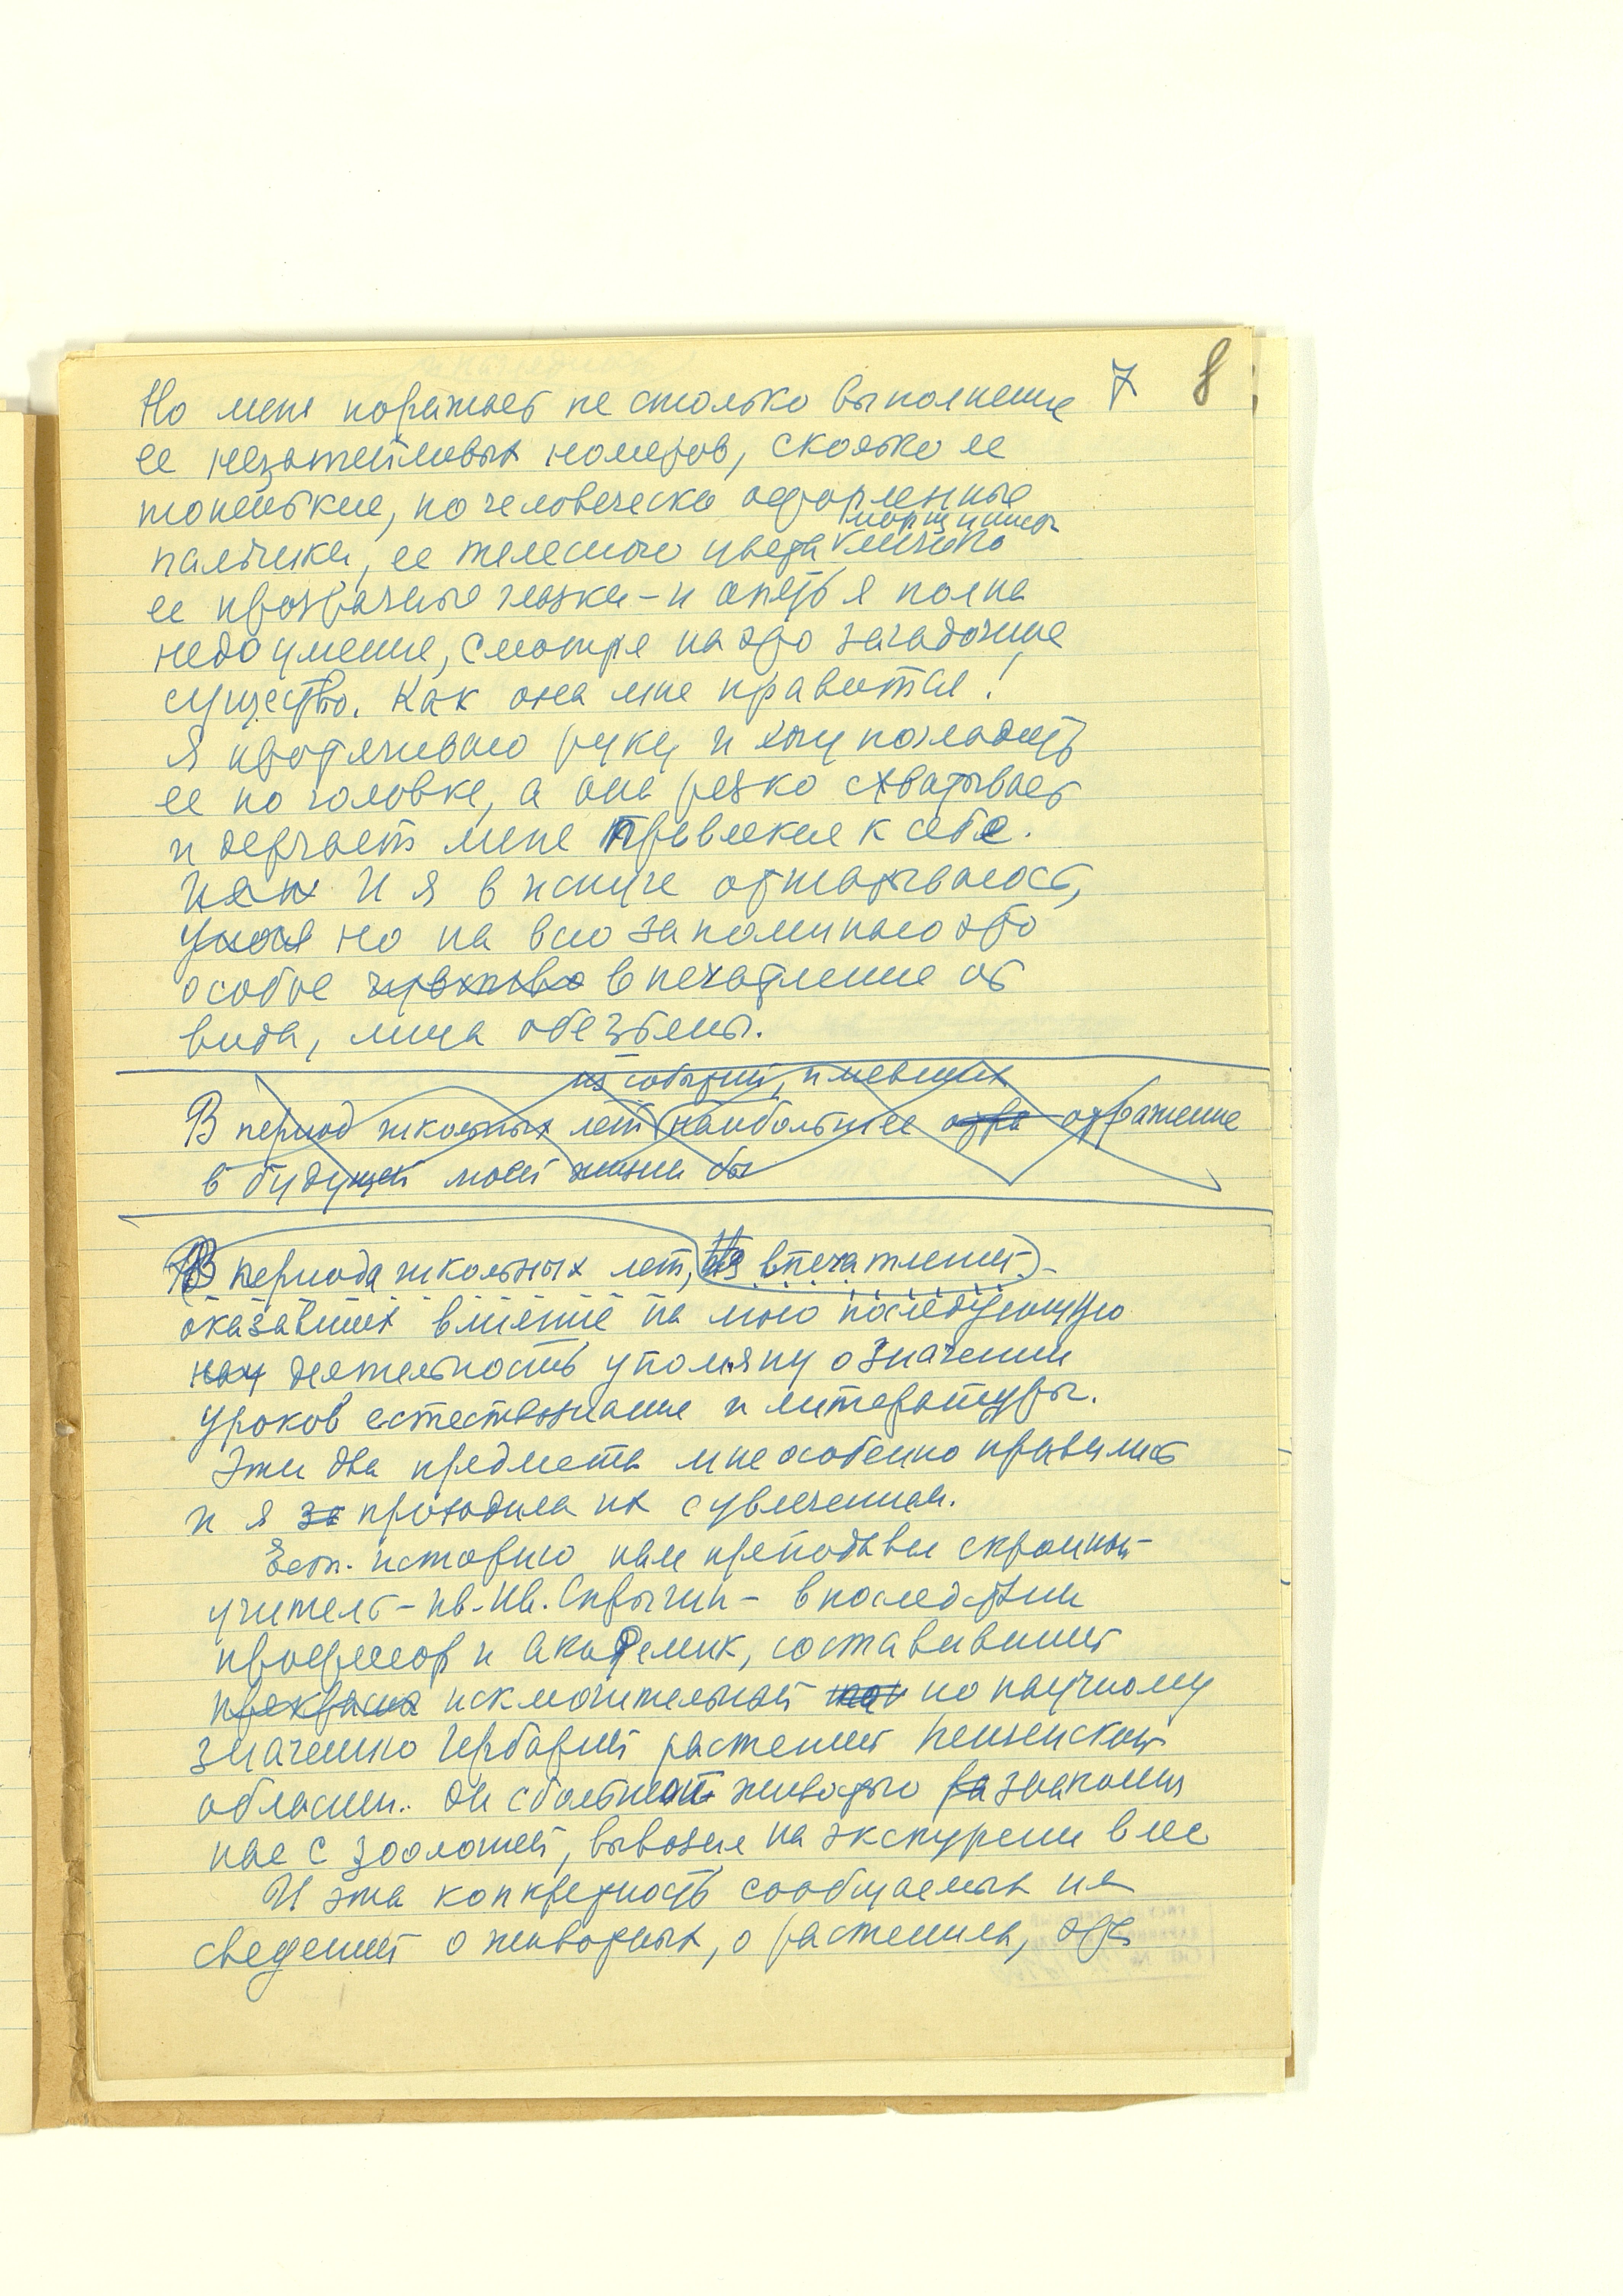 7 8
Но меня поражает не столько выполнение
ее незатейливых номеров, сколько ее
тоненькие, по человечески оформленные
пальчики, ее телесного цвета морщинистое личико
ее прозрачные глазки - и опять я полна
недоумения, смотря на это загадочное
существо. Как она мне нравится!
Я протягиваю руку и хочу погладить
ее по головке, а она резко схватывает
и держает меня привлекая к себе.
И я в испуге отшатываюсь,
но на всю запоминаю это
особое чувство впечатление от
вида, лица обезьяны.
из событий, имевших
В период школьных лет наибольшее отра отражение
в будущей моей жизни бы
В периода школьных лет, Из впечатлений -
оказавших влияние на мою последующую
деятельность упомяну о значении
уроков естествознания и литературы.
Эти два предмета мне особенно нравились
и я за проходила их с увлечением.
Ест. историю нам преподавал скромный
учитель - Ив. Ив. Спрыгин - впоследствии
профессор и академик, составивший
прекрасн исключительный по научному
значению гербарий растений Пензенской
области. Он с большой живостью знакомил
нас с зоологией, вывозил на экскурсии в лес
И эта конкретность сообщаемых им
сведений о животных, о растениях, эта